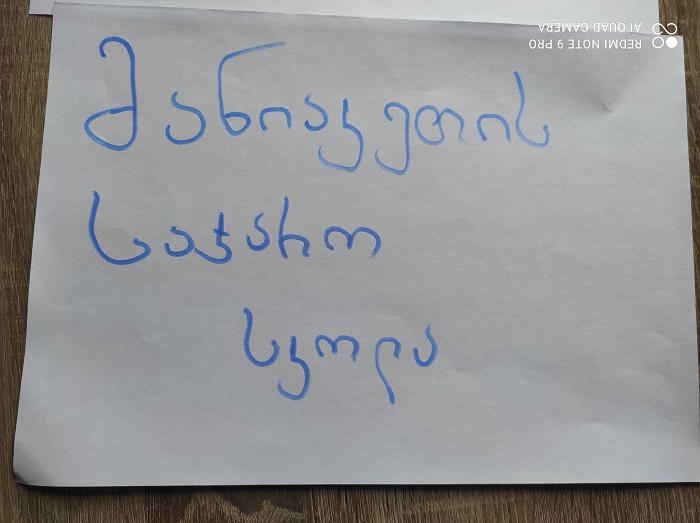 მანიაკეთის
საჯარო
სკოლა
REDMI NOTE 9 PRO
AI QUAD CAMERA